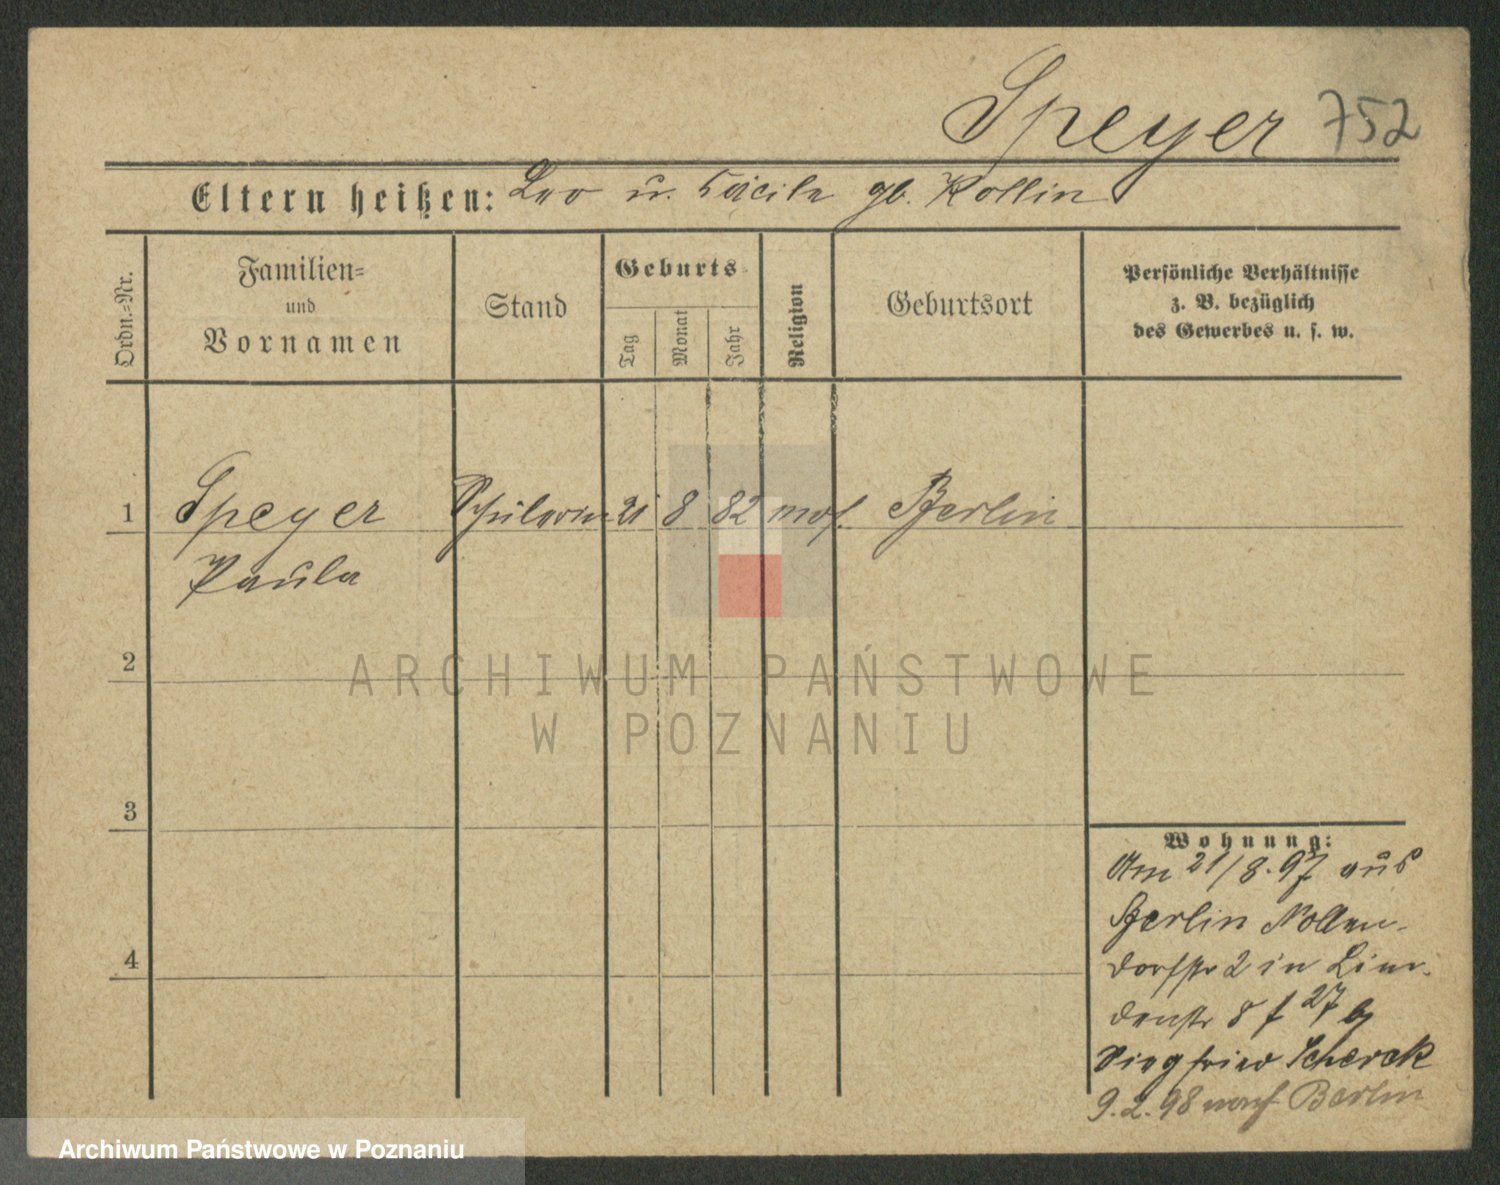 Speyer 752
Eltern heißen: Leo u. Cäcile gb. Kollin
Ordn.=Nr.
Familien=
und
Vornamen
Stand
Geburts=
Tag
Monat
Jahr
Religion
Geburtsort
Persönliche Verhältnisse
z. B. bezüglich
des Gewerbes u. s. w.
1 Speyer Schülerin 21 8 82 mos. Berlin
Paula
2
ARCHIWUM PAŃSTWOWE
W POZNANIU
3
Wohnung:
Am 21/8.97 aus
Berlin Nollen-
4
dorfstr 2 in Lin-
denstr 8 f 27/8
Siegfried Scherek
9.2.98 nach Berlin
Archiwum Państwowe w Poznaniu